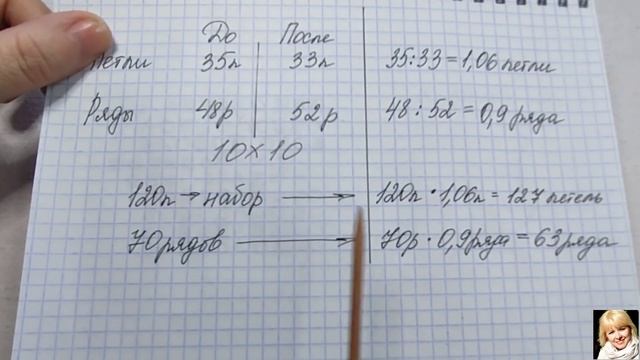 До После
Петли 35п 33п 35:33=1,06 петли
Ряды 48р 52р 48:52=0,9 ряда
10×10
120п→набор → 120п·1,06п=127 петель
70рядов → 70р·0,9ряда=63ряда